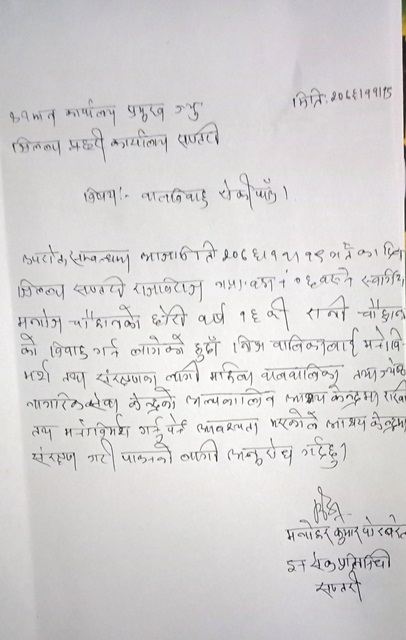 मिति: २०७६।११।१८
श्रीमान कार्यालय प्रमुख ज्यु
जिल्ला प्रहरी कार्यालय सप्तरी
विषय:- बालविवाह रोकी पाउँ।
उपरोक्त सम्बन्धमा आज मिति २०७६।११।१८ गतेका दिन
जिल्ला सप्तरी गा.पा. वडा नं ०६ बस्ने
मनोज चौहानको छोरी वर्ष १६ की रानी चौहान
को विवाह गर्न लागेको हुदाँ निज बालिकालाई मनोवि
मर्श तथा संरक्षणका लागी महिला बालबालिका तथा जेष्ठ
नागरिक सेवा केन्द्रको अल्पकालिन आश्रय केन्द्रमा राखि
तथ मनोविमर्श गर्नु पर्ने आवश्यता भएकोले आश्रय केन्द्रमा
संरक्षण गरी पाउनको लागी अनुरोध गर्दछु।
मनोहर कुमार पोखरेल
सप्तरी